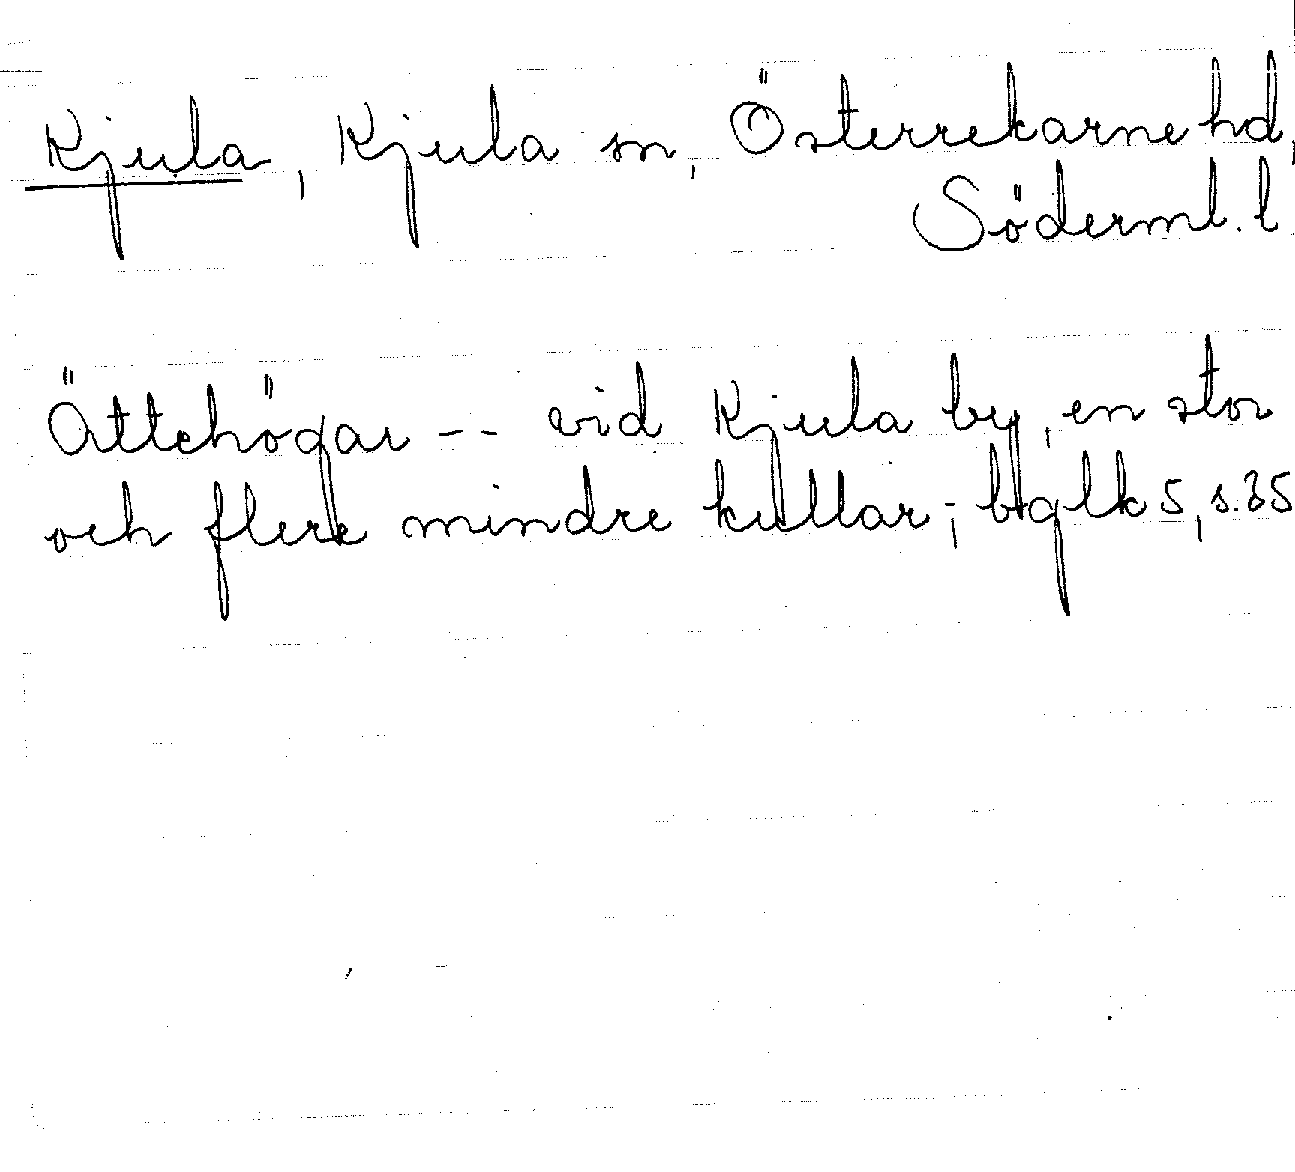 Kjula, Kjula sn, Österrekarne hd,
Söderml. l
Ättehögar -- vid Kjula by, en stor
och flere mindre kullar-; bglk 5, s. 35